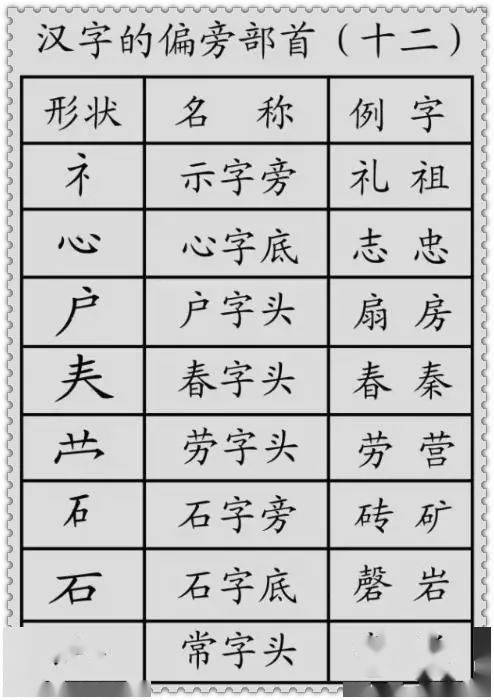 汉字的偏旁部首（十二）
形状 名 称 例 字
礻 示字旁 礼 祖
心 心字底 志 忠
户 户字头 扇 房
𡗗 春字头 春 秦
龷 劳字头 劳 营
石 石字旁 砖 矿
石 石字底 磬 岩
常字头